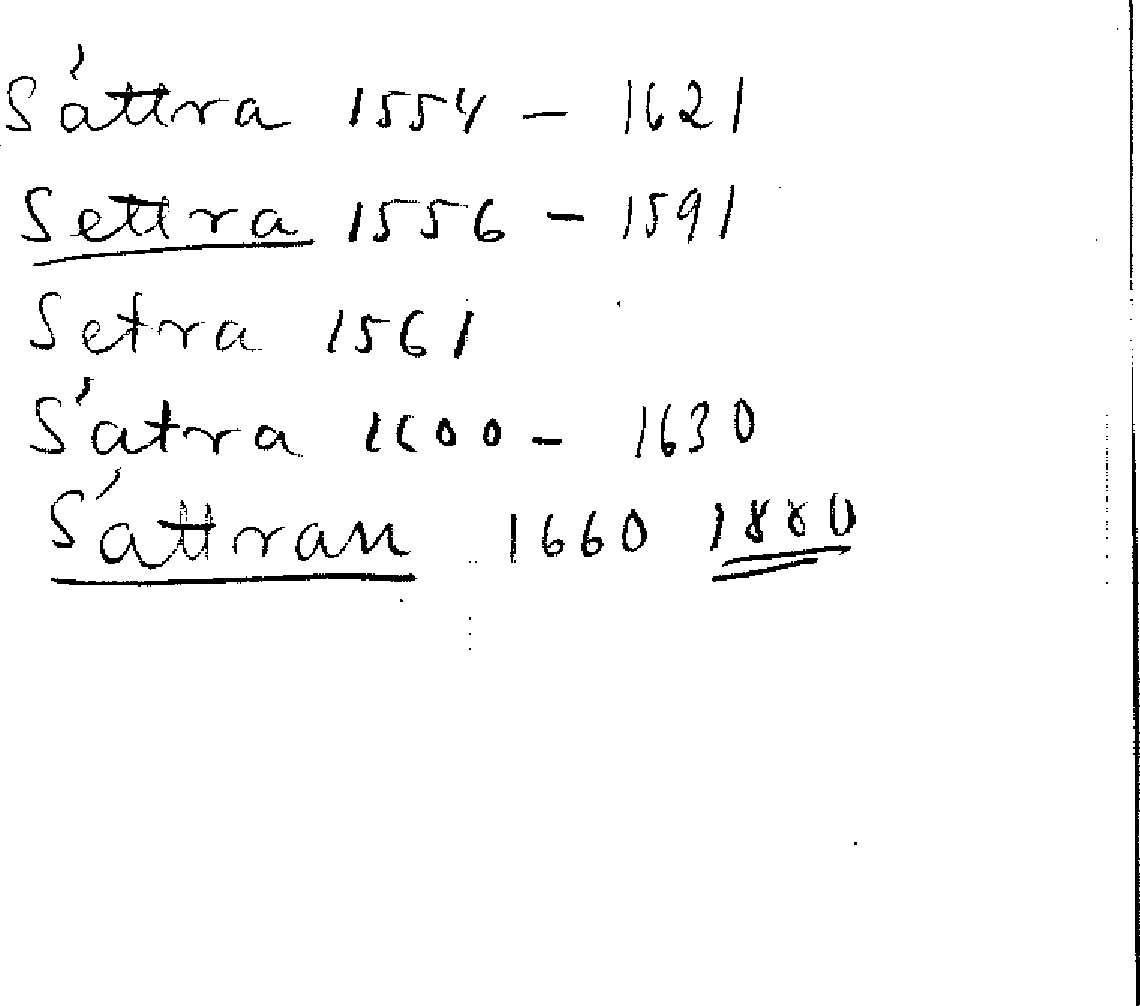 Sáttra 1554 - 1621
Settra 1556 - 1591
Setra 1561
Sátra 1600 - 1630
Sáttran 1660 1880